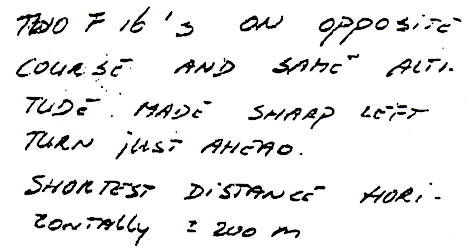 TWO F 16's ON OPPOSITE
COURSE AND SAME ALTI-
TUDE. MADE SHARP LEFT
TURN JUST AHEAD.
SHORTEST DISTANCE HORI-
ZONTALLY ± 200 m